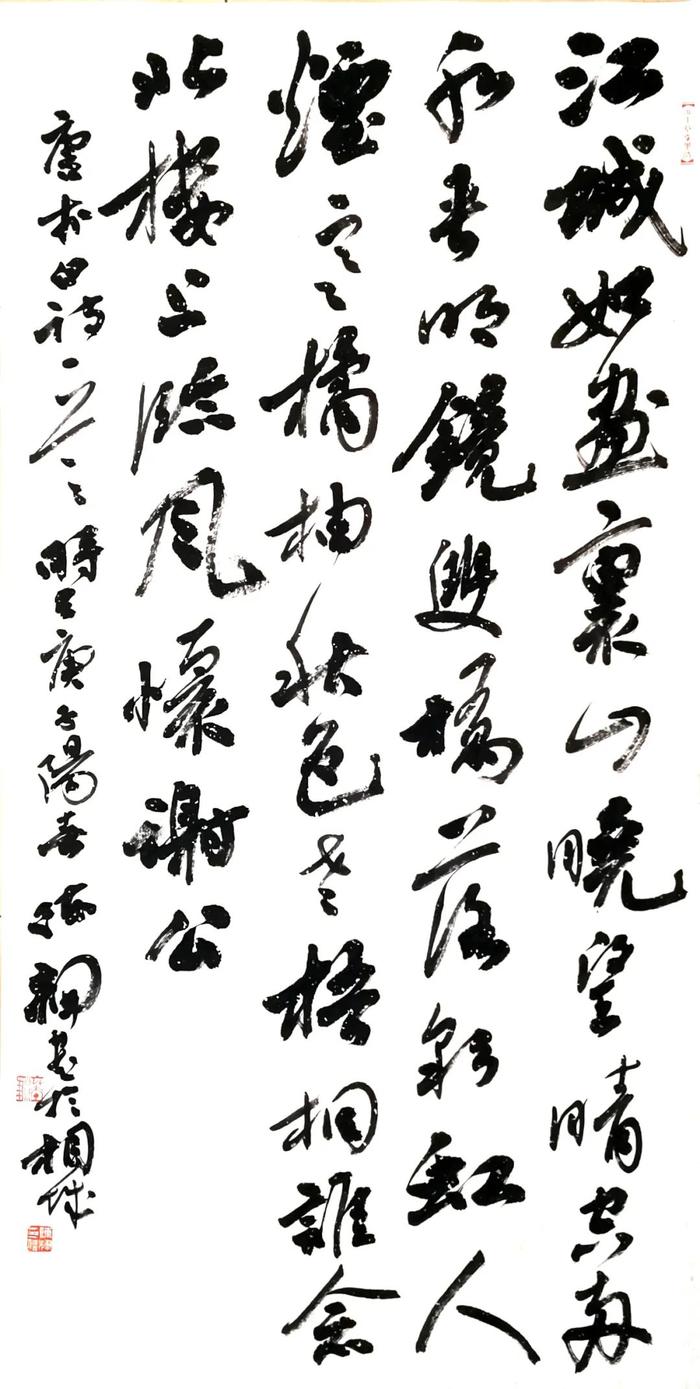 江城如畫裏山曉望晴空兩
水夾明鏡雙橋落彩虹人
煙寒橘柚秋色老梧桐誰念
北樓上臨風懷謝公
唐李白詩一首時庚子陽春書於相城